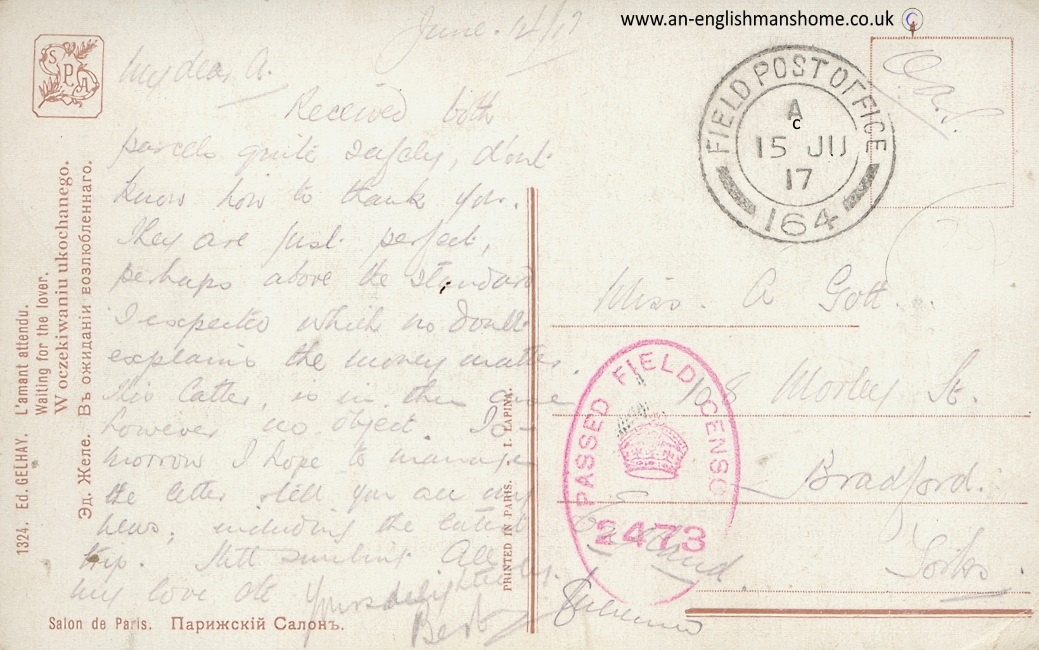 www.an-englishmanshome.co.uk
SPA
June. 14/17
My dear A.
Received both
parcels quite safely, don't
know how to thank you.
They are just perfect,
perhaps above the standard
I expected which no doubt
explains the money matter.
This latter, is in this case
however no object. To-
morrow I hope to manage
the letter & tell you all my
news, including the latest
trip. Still smiling All
my love etc Yours delightedly.
Bert
FIELD POST OFFICE
A
C
15 JU
17
164
O.A.S.
Miss. A Gott.
108 Morley St.
Bradford.
Yorks
England
PASSED FIELD CENSO
2473
1324. Ed. GELHAY. L'amant attendu.
Waiting for the lover.
W oczekiwaniu ukochanego.
Эд. Желе. Въ ожиданіи возлюбленнаго.
PRINTED IN PARIS. I. LAPINA.
Salon de Paris. Парижскій Салонъ.